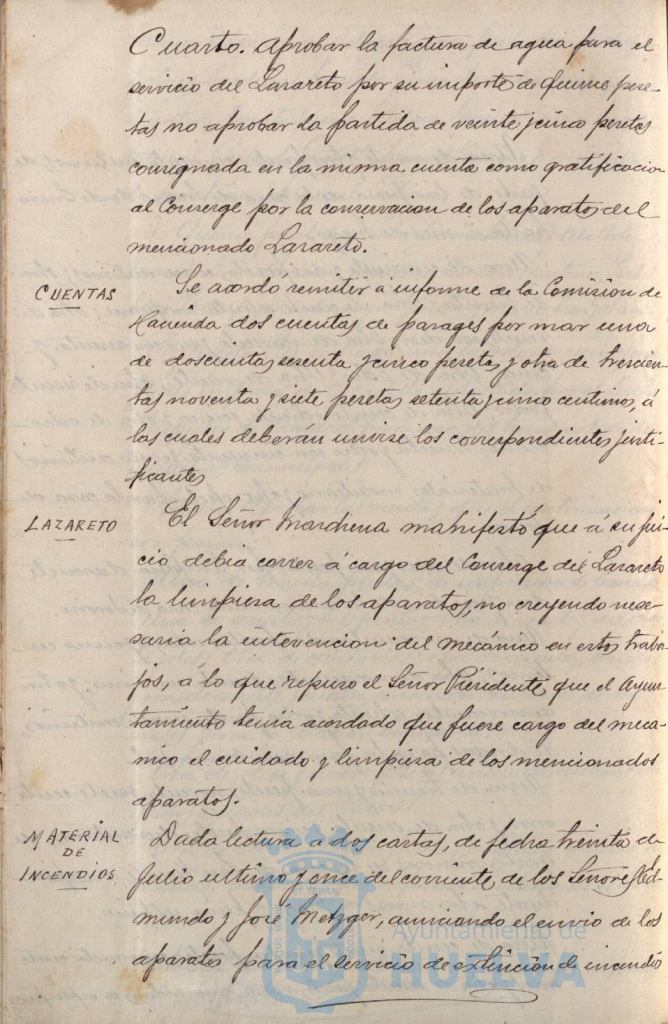 Cuarto. Aprobar la factura de agua para el
servicio del Lazareto por su importe de quince pese-
tas no aprobar la partida de veinte y cinco pesetas
consignada en la misma cuenta como gratificacion
al Conserge por la conservacion de los aparatos del
mencionado Lazareto.
CUENTAS
Se acordó remitir á informe de la Comision de
Hacienda dos cuentas de parages por mar una
de doscientas sesenta y cinco pesetas y otra de trescien-
tas noventa y siete pesetas setenta y cinco centimos, á
las cuales deberán unirse los correspondientes justi-
ficantes
LAZARETO
El Señor Marchena manifestó que á su jui-
cio debia correr á cargo del Conserge del Lazareto
la limpiesa de los aparatos, no creyendo nese-
saria la intervencion del mecánico en estos traba-
jos, á lo que repuso el Señor Presidente, que el Ayun-
tamiento tenia acordado que fuere cargo del meca-
nico el cuidado y limpiesa de los mencionados
aparatos.
MATERIAL
DE
INCENDIOS
Dada lectura a dos cartas, de fecha treinta de
Julio ultimo y once del corriente de los Señores Ed-
mundo y José Metzger, anunciando el envio de los
aparatos para el servicio de extincion de incendio
Ayuntamiento de
HUELVA